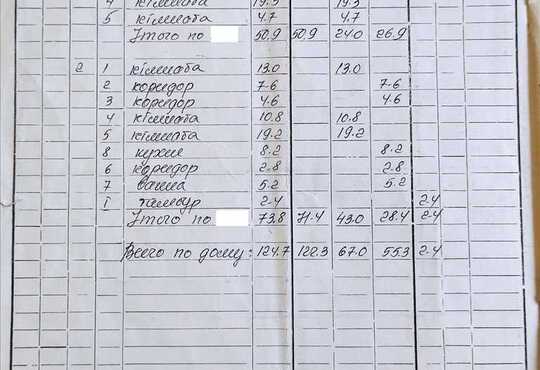 4 кімната 19.3 19.3
5 кімната 4.7 4.7
Итого по 50.9 50.9 24.0 26.9
2 1 кімната 13.0 13.0
2 коридор 7.6 7.6
3 коридор 4.6 4.6
4 кімната 10.8 10.8
5 кімната 19.2 19.2
8 кухня 8.2 8.2
6 коридор 2.8 2.8
7 ванна 5.2 5.2
I тамбур 2.4 2.4
Итого по 73.8 71.4 43.0 28.4 2.4
Всего по дому: 124.7 122.3 67.0 55.3 2.4